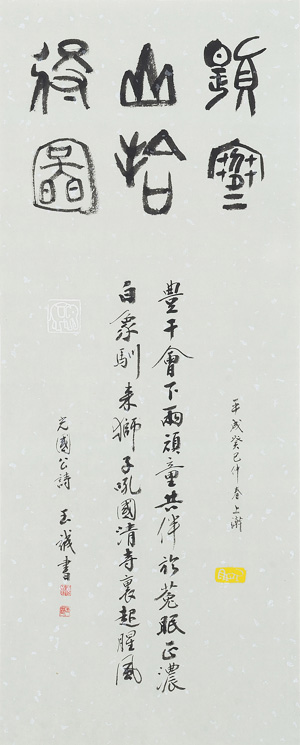 題寒
山拾
得圖
平成癸巳仲春上澣
豊干會下兩頑童共伴於菟眠正濃
白象馴来獅子吼國清寺裏起腥風
光國公詩 玉誠書